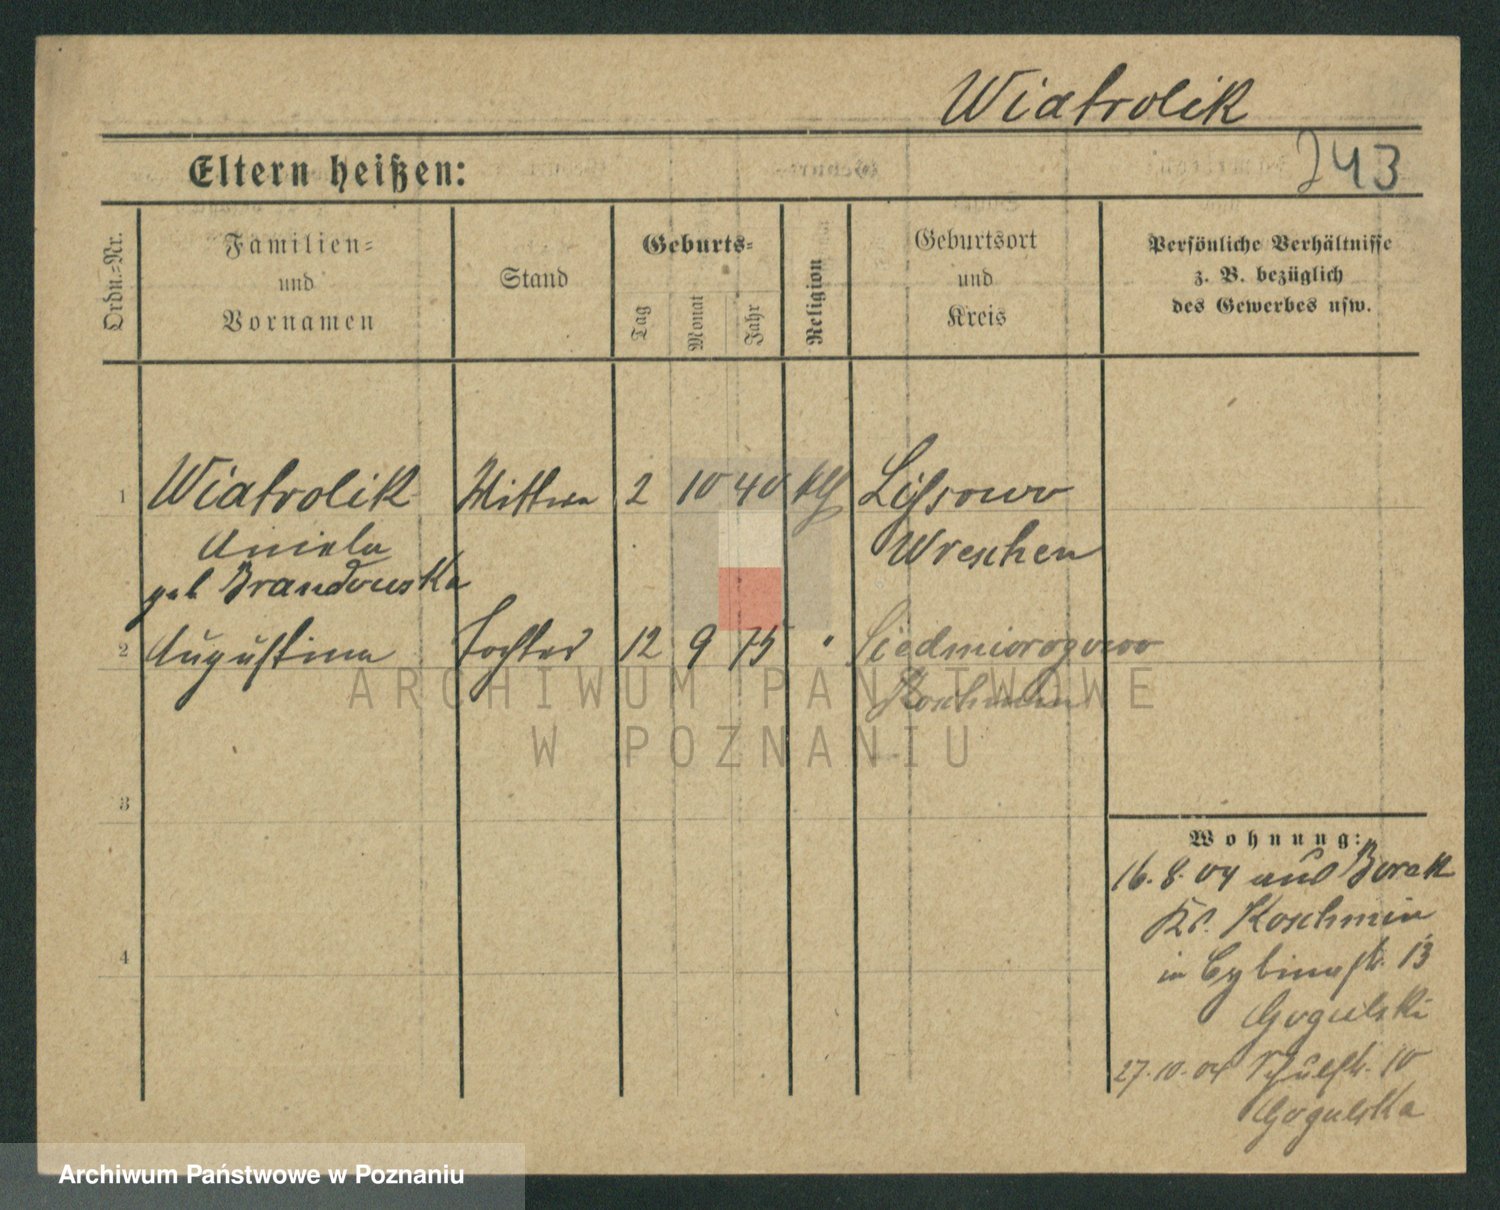 Wiatrolik
Eltern heißen:
243
Ordn.=Nr.
Familien=
und
Vornamen
Stand
Geburts=
Tag
Monat
Jahr
Religion
Geburtsort
und
Kreis
Persönliche Verhältnisse
z. B. bezüglich
des Gewerbes usw.
1 Wiatrolik Wittwe 2 10 40 kth Lissowo
Aniela Wreschen
geb Brandowska
2 Augustina Tochter 12 9 75 " Siedmiorogowo
Koschmin
3
4
Wohnung:
16.8.04 aus Borek
Kr. Koschmin
in Cybinastr. 13
Gogulski
27.10.04 Schulstr. 10
Gogulska
ARCHIWUM PAŃSTWOWE
W POZNANIU
Archiwum Państwowe w Poznaniu